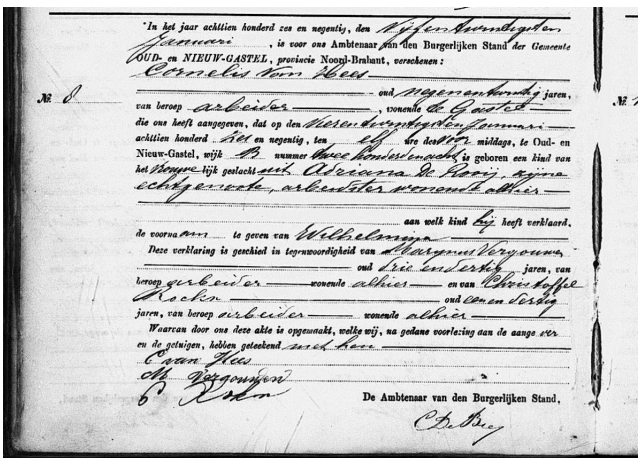 In het jaar achttien honderd zes en negentig, den Vijfentwintigsten
Januari, is voor ons Ambtenaar van den Burgerlijken Stand der Gemeente
OUD- en NIEUW-GASTEL, provincie Noord-Brabant, verschenen:
Cornelis van Hees
oud negenentwintig jaren,
No. 8
van beroep arbeider, wonende te Gastel
die ons heeft aangegeven, dat op den Vierentwintigsten Januari
achttien honderd zes en negentig, ten elf ure des voor middags, te Oud- en
Nieuw-Gastel, wijk B nummer twee honderd en acht is geboren een kind van
het vrouwelijk geslacht uit Adriana de Rooij, zijne
echtgenoote, arbeidster wonende alhier
aan welk kind hij heeft verklaard,
de voornaam te geven van Wilhelmina
Deze verklaring is geschied in tegenwoordigheid van Marynus Vergouwen
oud drie en dertig jaren, van
beroep arbeider wonende alhier en van Christoffel
oud een en dertig
jaren, van beroep arbeider wonende alhier
Waarvan door ons deze akte is opgemaakt, welke wij, na gedane voorlezing aan de aange ver
en de getuigen, hebben geteekend met hen
C van Hees
M. Vergouwen
De Ambtenaar van den Burgerlijken Stand,